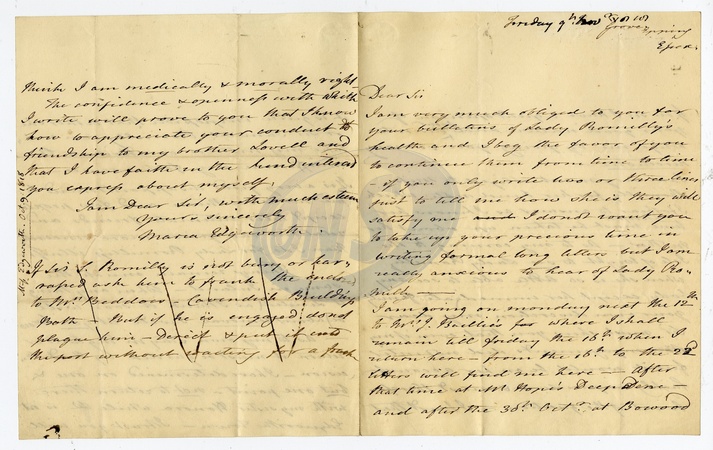 Friday 9th 1818
Grove
Epping
Essex.
Dear Sir
I am very much obliged to you for
your bulletins of Lady Romilly's
health and I beg the favor of you
to continue them from time to time
if you only write two or three lines
just to tell me how she is they will
satisfy me I do not want you
to take up your precious time in
writing formal long letters but I am
really anxious to hear of Lady Ro-
milly —
I am going on monday next the 12th
to Mrs J. Baillie's for where I shall
remain till friday the 16th when I
return here — from the 16th to the 22d
letters will find me here — After
that time at Mr Hope's Deepdene —
and after the 30th Octr at Bowood
think I am medically & morally right
The confidence & openness with which
I write will prove to you that I know
how to appreciate your conduct &
friendship to my brother Lovell and
that I have faith in the kind interest
you express about myself.
I am Dear Sir, with much esteem
Yours sincerely
Maria Edgeworth.
If Sir S. Romilly is not busy or har-
rassed ask him to frank the
to Mrs Beddoes — Cavendish Buildings
Bath — But if he is engaged do not
plague him — & put it into
the post without waiting for a frank
Edgeworth. Oct. 9. 1818